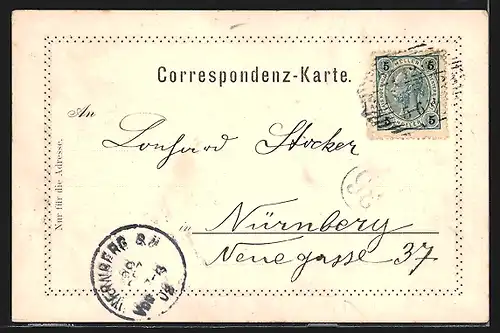 Correspondenz-Karte.
5 HELLER 5
5 5
An
Nur für die Adresse.
Lonhard Stocker
in Nürnberg
Neuegasse 37
NUERNBERG B.H